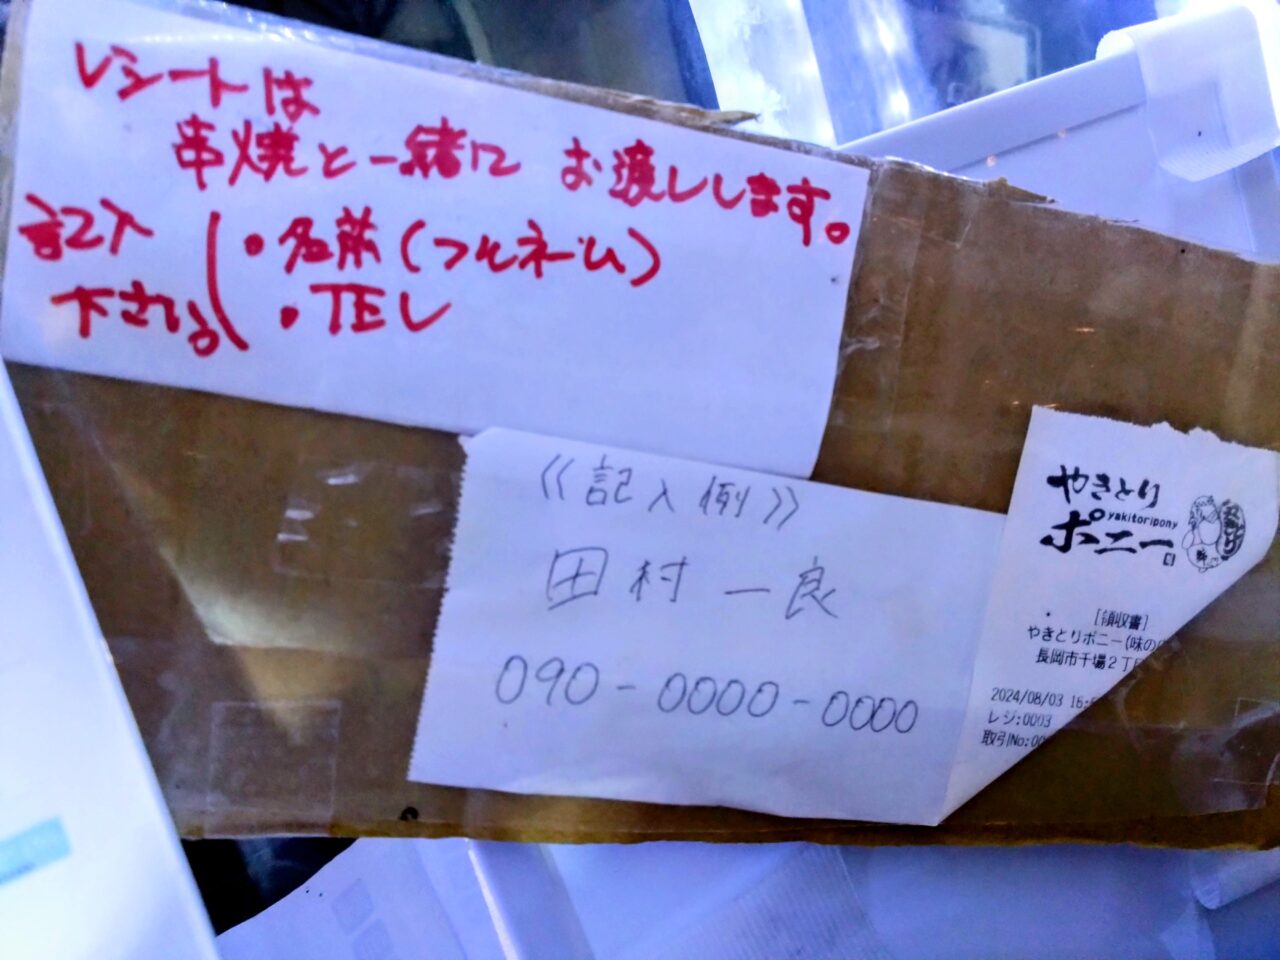 レシートは
串焼と一緒に お渡しします。
記入
下さる
・名前(フルネーム)
・TEL
《記入例》
田村 一良
090-0000-0000
やきとり
ポニー
yakitoripony
[領収書]
やきとりポニー(味の
長岡市千場2丁
2024/08/03 16:
レジ:0003
取引No:00